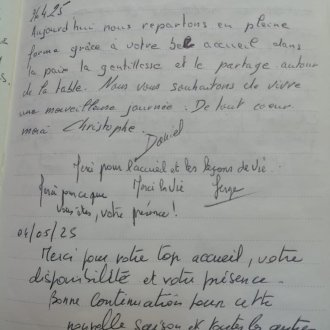 4 25
Aujourd'hui nous repartons en pleine
forme grâce à votre bel accueil dans
la paix la gentillesse et le partage autour
de la table. Nous vous souhaitons de vivre
une merveilleuse journée. De tout coeur
merci Christophe.
Daniel
Merci pour l'accueil et les leçons de vie.
Merci pour ce que Merci la vie Serge
vous êtes, votre présence !
04/05/25
Merci pour votre top accueil, votre
disponibilité et votre présence.
Bonne continuation pour cette
nouvelle saison et toutes les autres